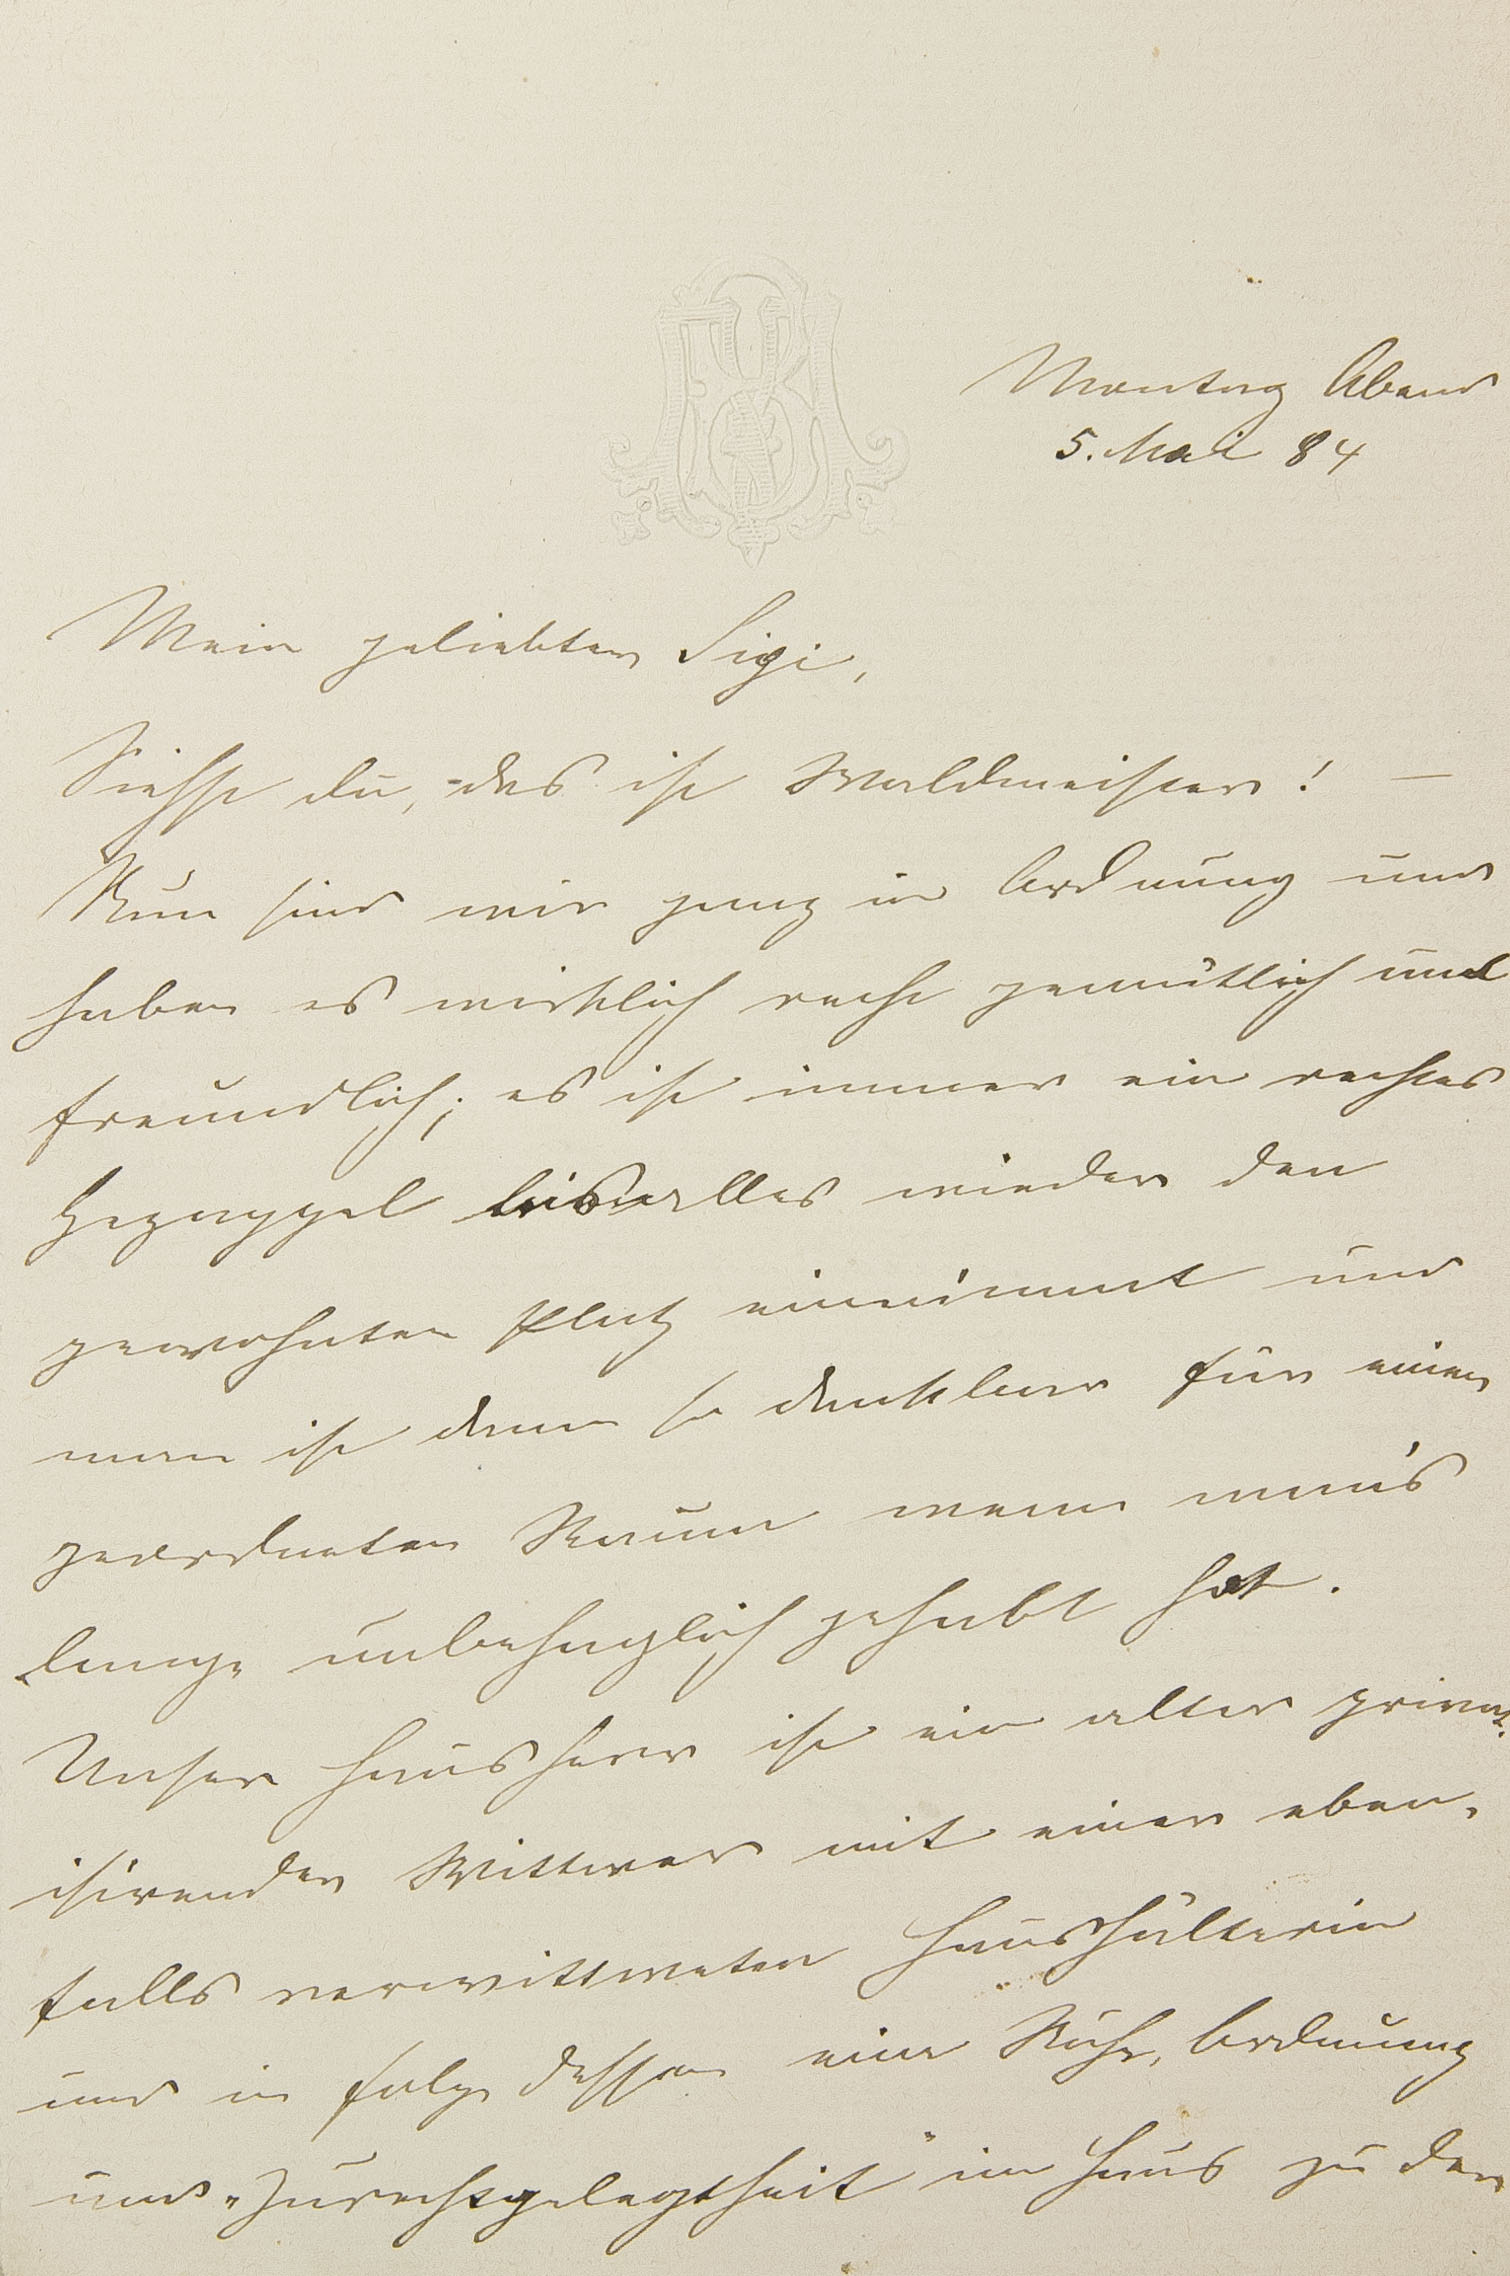 Montag Abend
5. Mai 84
Mein geliebter Sigi,
Siehst du, das ist Waldmeister! —
Nun sind wir ganz in Ordnung und
haben es wirklich recht gemütlich und
freundlich; es ist immer ein rechtes
Gezappel bis alles wieder den
gewohnten Platz einnimmt und
man ist dann so dankbar für einen
geordneten Raum wenn man's
lange unbehaglich gehabt hat.
Unser Hausherr ist ein alter privat-
isirender Wittwer mit einer eben-
falls verwittweten Haushälterin
und in folge dessen eine Ruhe, Ordnung
und „Zurechtgelegtheit" im Haus zu der